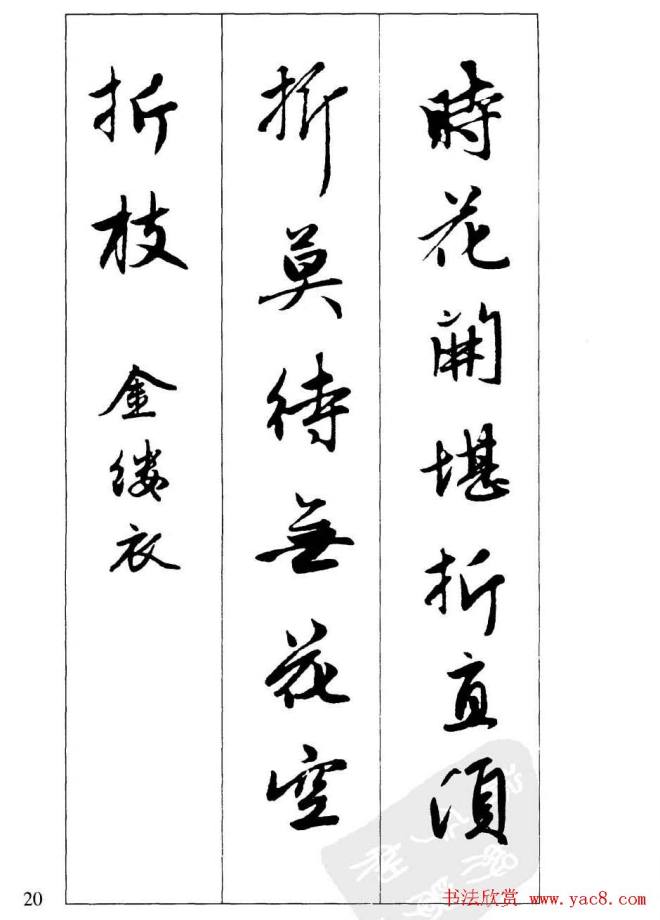 時花開堪折直須
折莫待無花空
折枝 金缕衣
20
书法欣赏 www.yac8.com